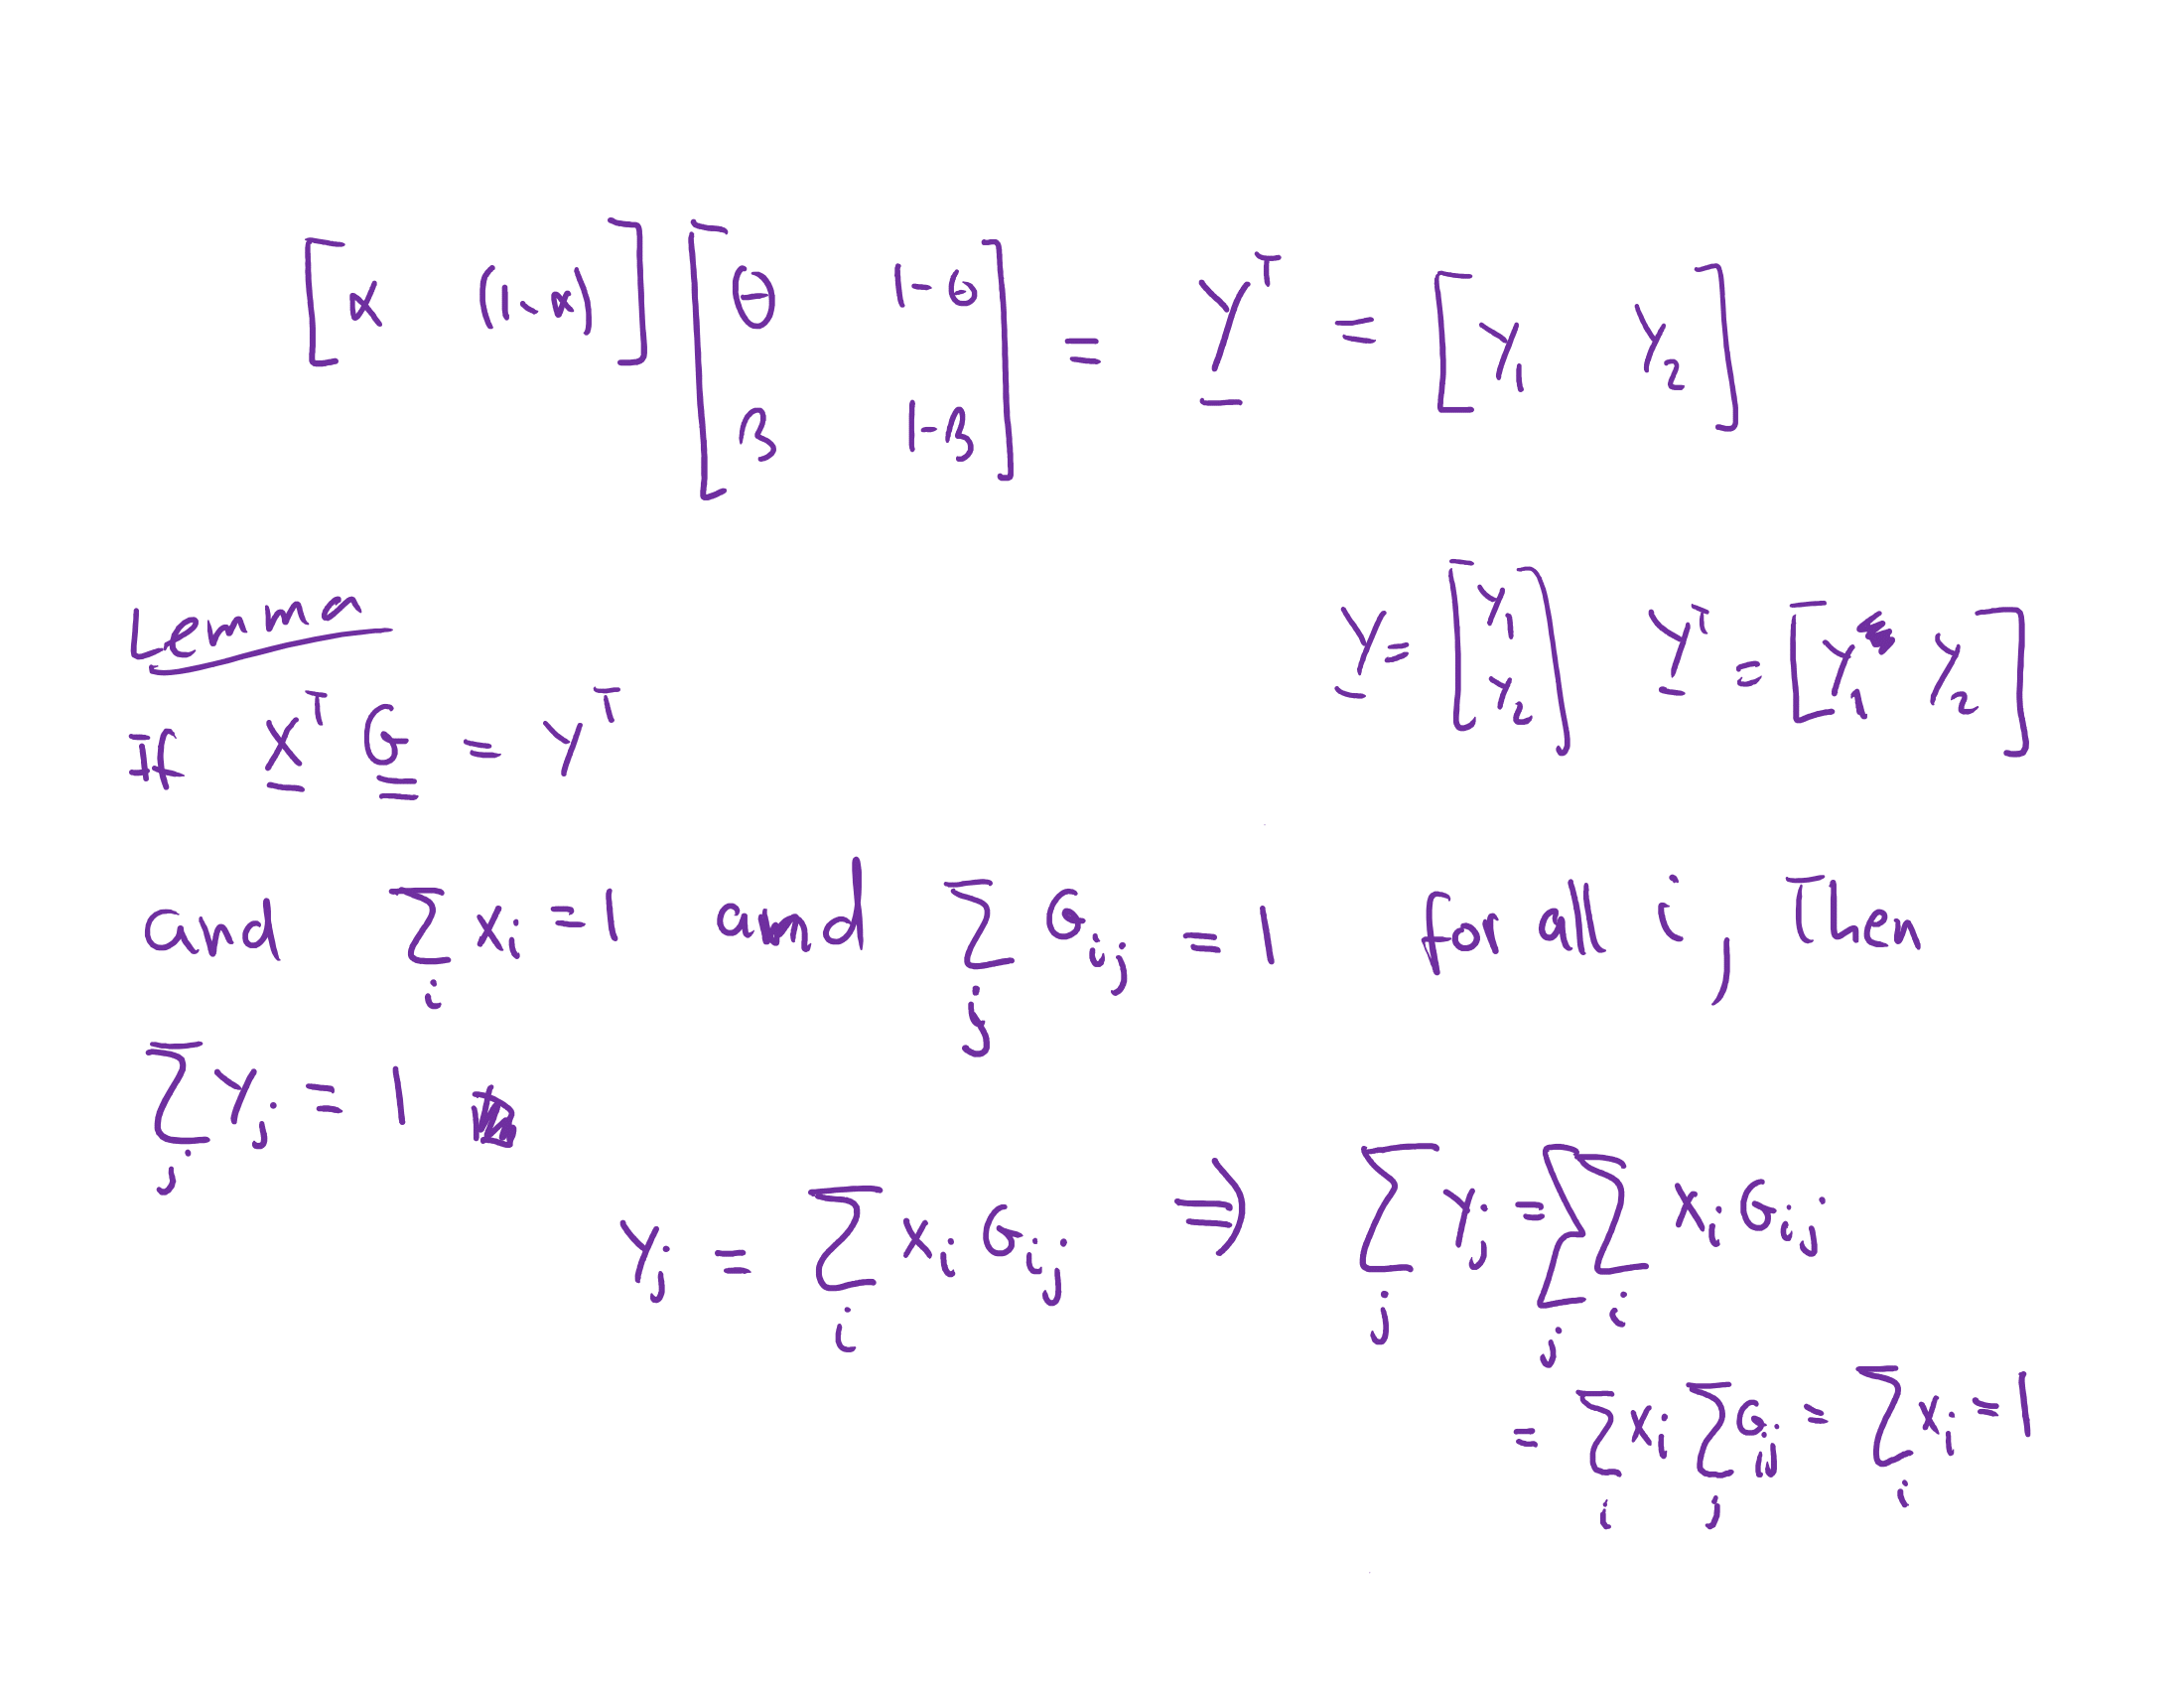 [α (1-α)] [θ 1-θ; β 1-β] = Y^T = [Y_1 Y_2]
Lemma
Y = [Y_1; Y_2] Y^T = [Y_1 Y_2]
If X^T G = Y^T
and Σ_i x_i = 1 and Σ_j G_ij = 1 for all i, Then
Σ_j Y_j = 1
Y_j = Σ_i x_i G_ij ⇒ Σ_j Y_j = Σ_j Σ_i x_i G_ij
= Σ_i x_i Σ_j G_ij = Σ_i x_i = 1